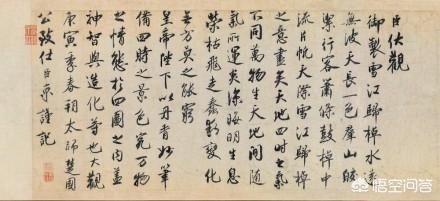 臣伏觀
御製雪江歸棹水遠
無波天長一色群山皎
潔行客蕭條鼓棹中
流片帆天際雪江歸棹
之意盡矣天地四時之氣
不同萬物生天地間隨
氣所運炎涼晦明生息
榮枯飛走蠢動變化
無方莫之能窮
皇帝陛下以丹青妙筆
備四時之景色究萬物
之情態於四圖之內蓋
神智與造化等也大觀
庚寅季春朔太師楚國
公致仕臣京謹記
悟空问答